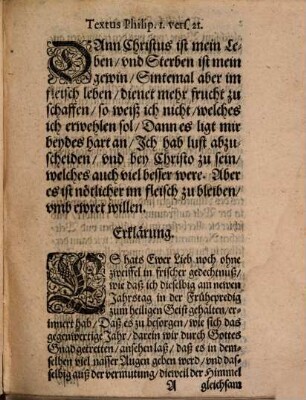 Textus Philip. 1. vers. 21.
DAnn Christus ist mein Le-
ben / vnd Sterben ist mein
gewin / Sintemal aber im
fleisch leben / dienet mehr frucht zu
schaffen / so weiß ich nicht / welches
ich erwehlen sol / Dann es ligt mir
beydes hart an / Ich hab lust abzu-
scheiden / vnd bey Christo zu sein /
welches auch viel besser were. Aber
es ist nötlicher im fleisch zu bleiben /
vmb ewret willen.
Erklärung.
ES hats Ewer Lieb noch ohne
zweiffel in frischer gedechtnuß /
wie daß ich dieselbig am neuen
Jahrstag in der Frühepredig
zum heiligen Geist gehalten / er-
innert hab / Daß es zu besorgen / wie sich das
gegenwertige Jahr / darein wir durch Gottes
Gnad getretten / ansehen laß / daß es in dem-
selben viel nasser Augen geben werd / vnd das-
selbig auß der vermutung / dieweil der Himmel
A gleichsam